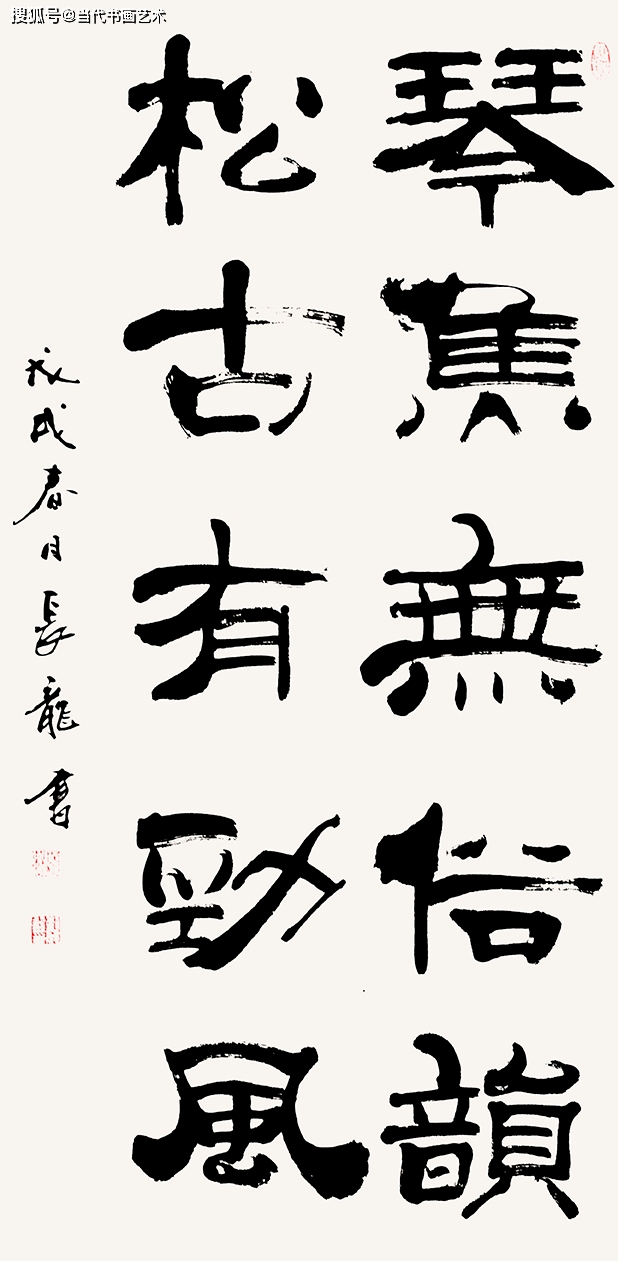 搜狐号@当代书画艺术
琴焦無俗韻
松古有勁風
戊戌春日長龍書